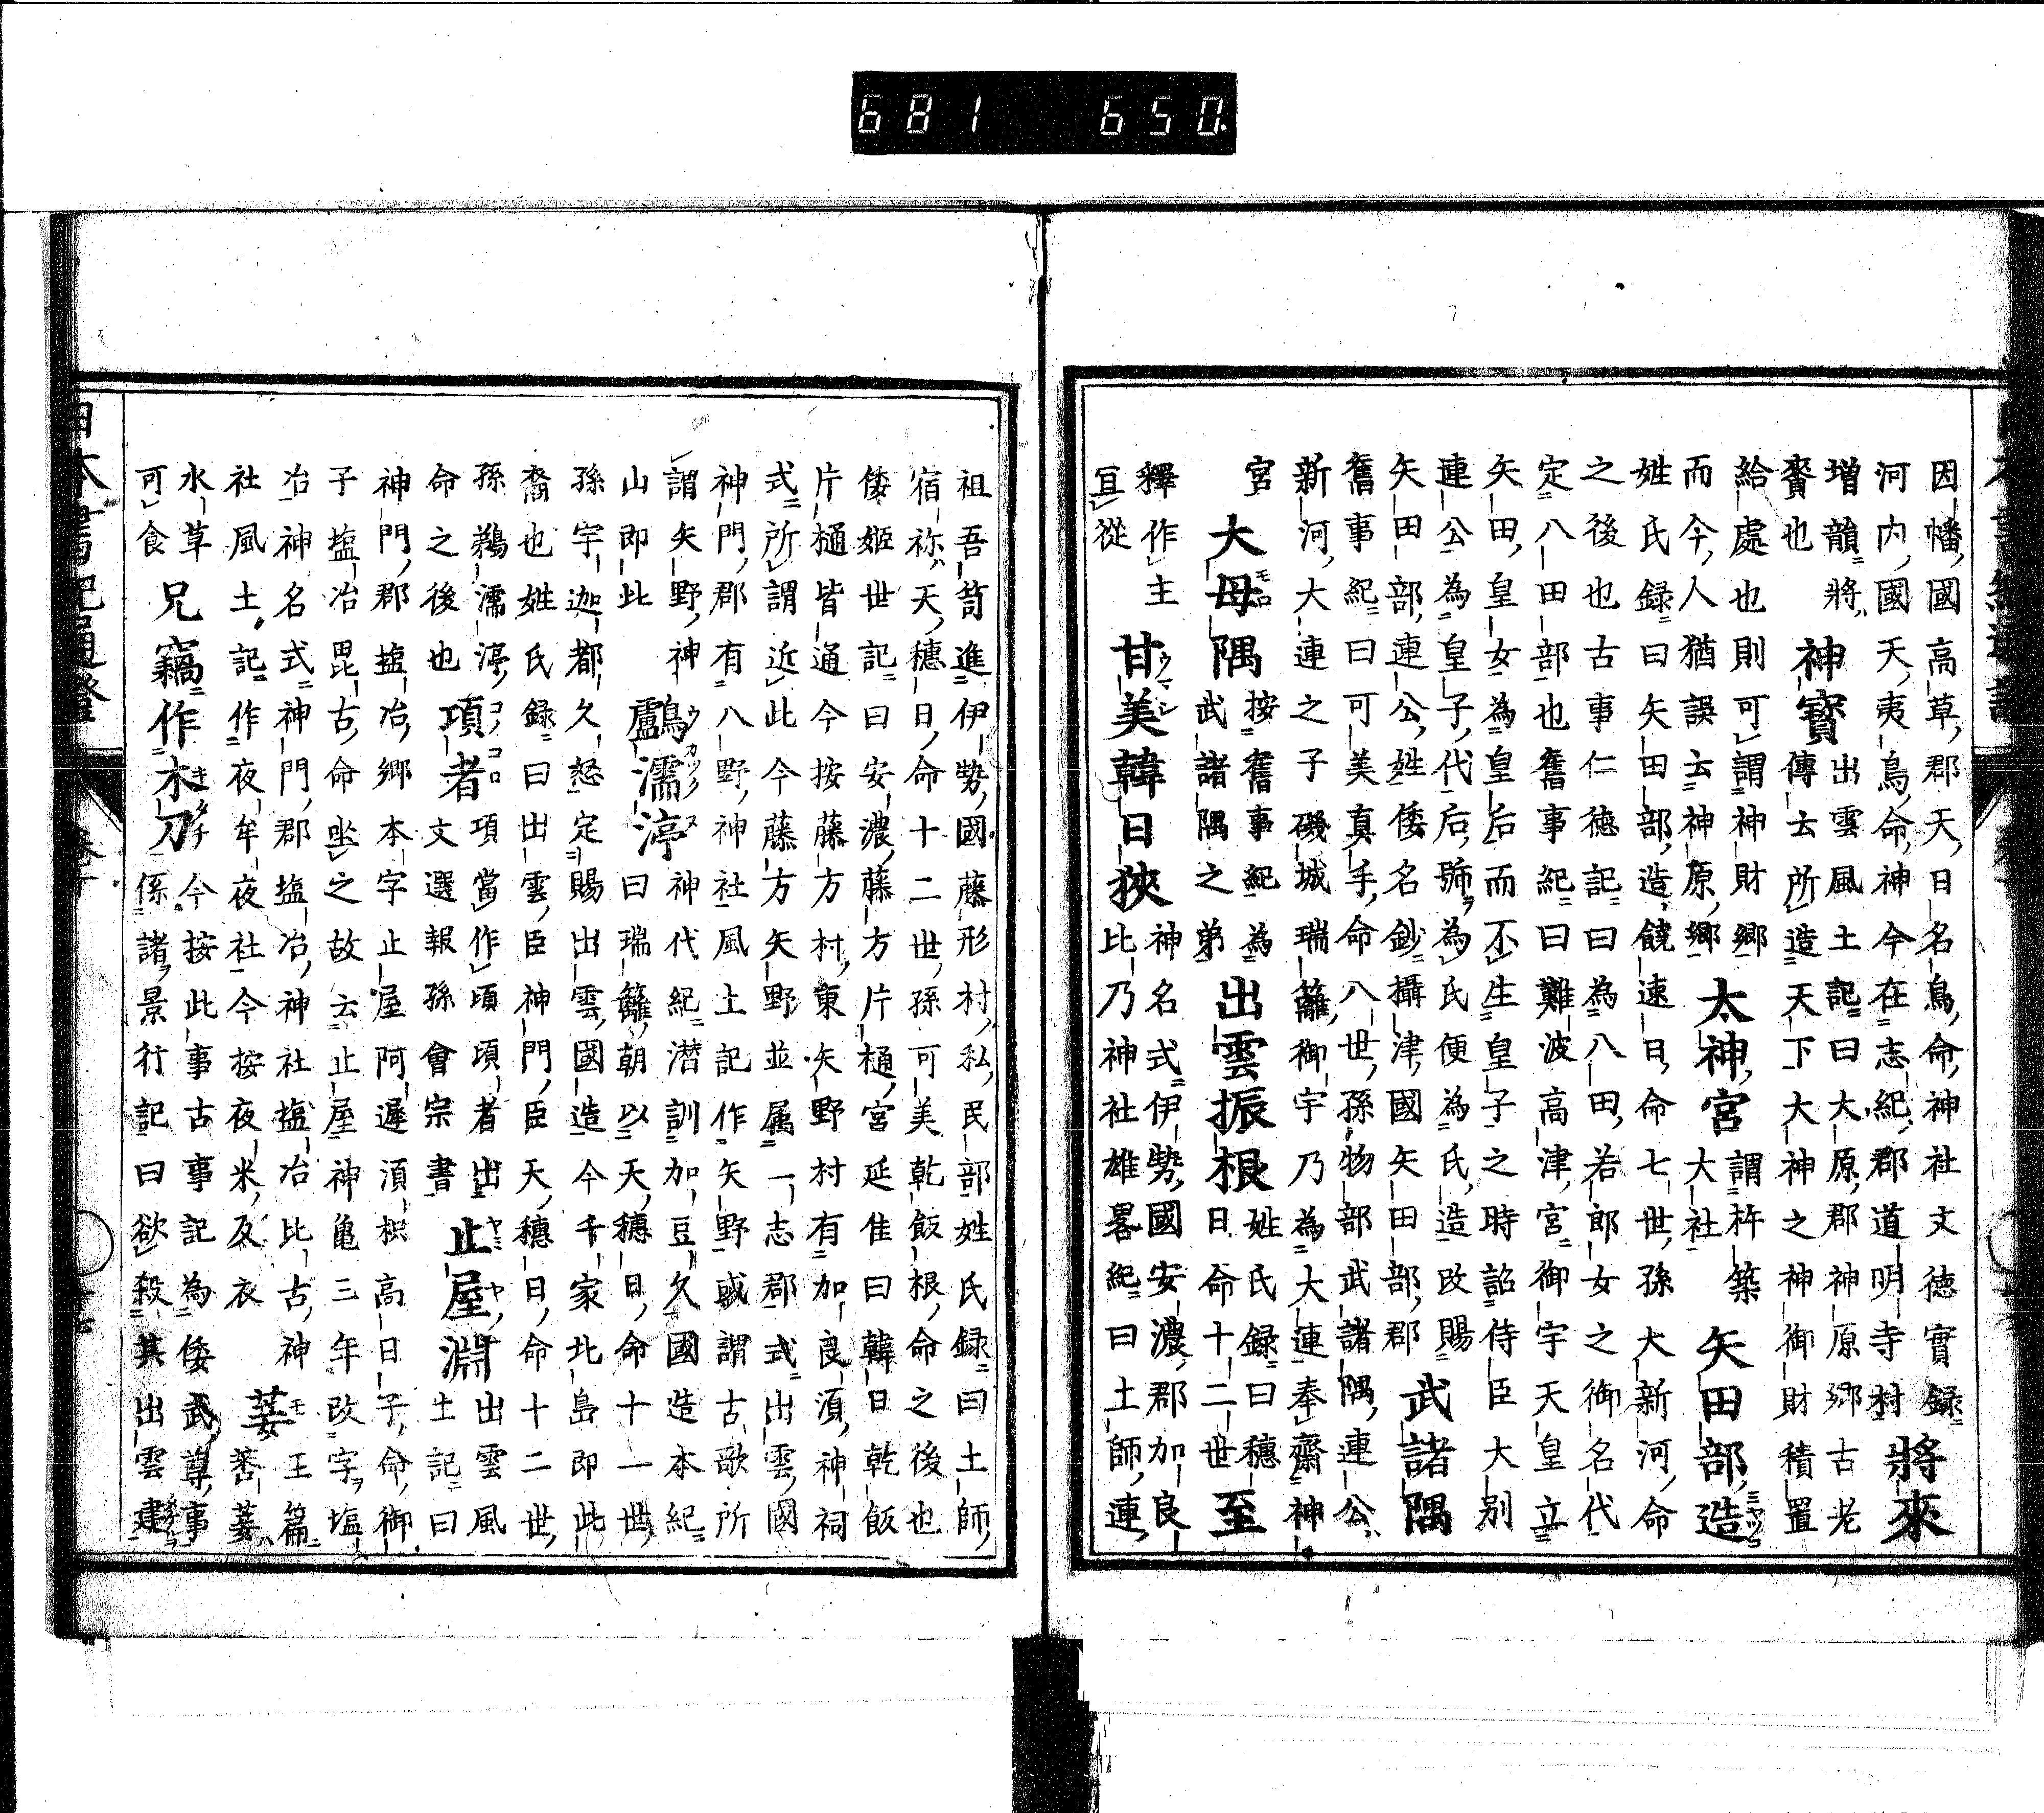 681 650.
因幡國高草郡天日名鳥命神社文徳實録
河内國天夷鳥命神今在志紀郡道明寺村 將來
増韻將
賚也 神寳 出雲風土記曰大原郡神原郷古老
傳云所造天下大神之神御財積置
給處也則可謂神財郷
而今人猶誤云神原郷 太神宮 謂杵築
大社 矢田部造 ミヤツコ
姓氏録曰矢田部造饒速日命七世孫大新河命
之後也古事仁徳記曰為八田若郎女之御名代
定八田部也舊事紀曰難波高津宮御宇天皇立
矢田皇女為皇后而不生皇子之時詔侍臣大別
連公為皇子代后號為氏便為氏造改賜
矢田部連公姓倭名鈔攝津國矢田部郡 武諸隅
舊事紀曰可美真手命八世孫物部武諸隅連公
新河大連之子磯城瑞籬御宇乃為大連奉齋神
宮 大母隅 モロ 按舊事紀為
武諸隅之弟 出雲振根 姓氏録曰穗
日命十二世 至
釋作主
亘從 甘美韓日狹 ウマシ 神名式伊勢國安濃郡加良
比乃神社雄畧紀曰土師連
祖吾笥進伊勢國藤形村私民部姓氏録曰土師
宿祢天穗日命十二世孫可美乾飯根命之後也
倭姬世記曰安濃藤方片樋宮延佳曰韓日乾飯
片樋皆通今按藤方村東矢野村有加良湏神祠
式所謂近此今藤方矢野並属一志郡式出雲國
神門郡有八野神社風土記作矢野或謂古歌所
謂矢野神
山即此 鸕濡渟 ウカツクヌ 神代紀潜訓加豆久國造本紀
曰瑞籬朝以天穗日命十一世
孫宇迦都久怒定賜出雲國造今千家北島即此
裔也姓氏録曰出雲臣神門臣天穗日命十二世
孫鵜濡渟
命之後也 項者 コノコロ 項當作頃頃者出
文選報孫會宗書 止屋淵 ヤミヤ 出雲風
土記曰
神門郡塩冶郷本字止屋阿遲湏枳高日子命御
子塩冶毘古命坐之故云止屋神亀三年改字塩
冶神名式神門郡塩冶神社塩冶比古神
社風土記作夜牟夜社今按夜米反衣 萋 モ 玉篇
萫萋
水草
可食 兄竊作木刀 キタチ 今按此事古事記為倭武尊事
係諸景行記曰欲殺其出雲建